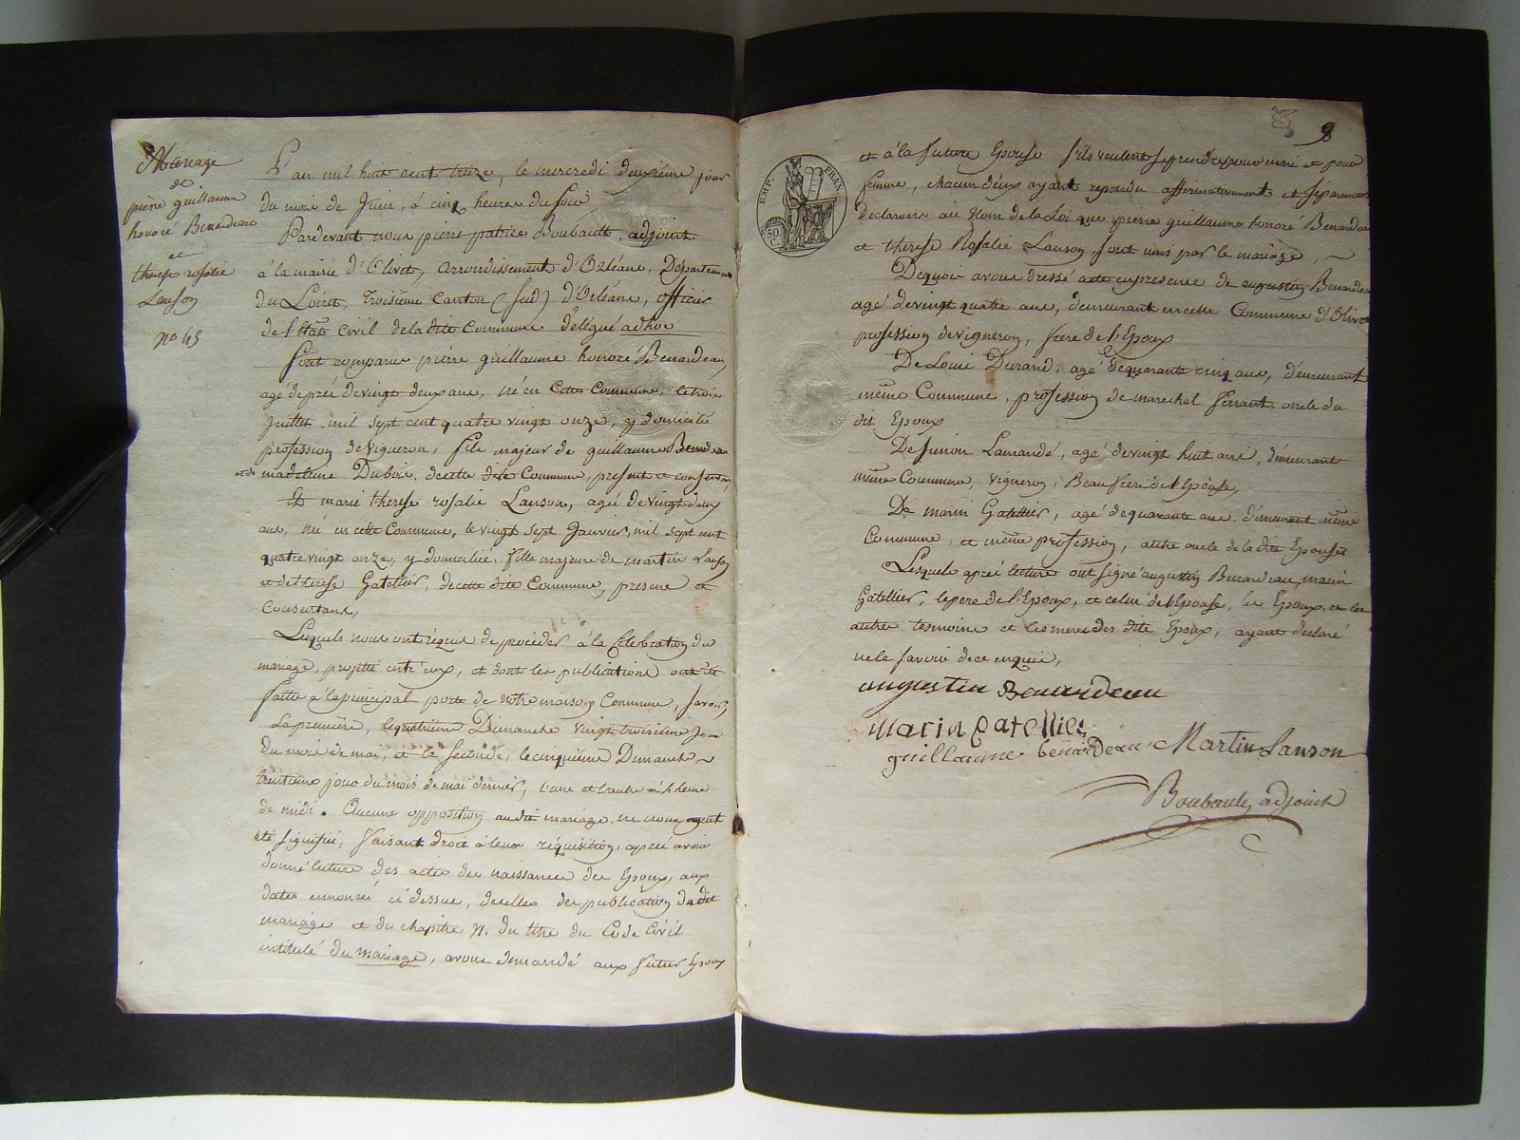 Mariage
de
pierre guillaume
honoré Benardeau
et
therese rosalie
Lanson
no 45
L'an mil huit cent treize, le mercredi deuxième jour
du mois de Juin, à cinq heures du soir
Pardevant nous pierre patrice Boubault, adjoint
à la mairie d'Olivet, arrondissement d'Orléans, Département
du Loiret, troisième Canton (sud) d'Orléans, officier
de l'état Civil de la dite Commune délégué adhoc
Sont comparus pierre guillaume honoré Benardeau,
agé de près de vingt deux ans, né en Cette Commune, le trois
Juillet mil sept cent quatre vingt onze, y domicilié
profession de vigneron, fils majeur de guillaume Benardeau
et de madelaine Dubois, de cette dite Commune, présent et consentant,
Et marie therese rosalie Lanson, agée de vingt deux
ans, née en cette Commune, le vingt sept Janvier, mil sept cent
quatre vingt onze, y domiciliée, fille majeure de martin Lanson
et de therese Gatellier, de cette dite Commune, présent et
Consentant,
Lesquels nous ont requis de procéder à la Célébration du
mariage, projetté entr'eux, et dont les publications ont été
faites à la principal porte de notre maison Commune, savoir,
La première, le quatrième Dimanche vingt troisième Jour
du mois de mai, et la seconde, le cinquième Dimanche
trentième jour du mois de mai dernier, l'une et l'autre à l'heure
de midi. Aucune opposition au dit mariage ne nous ayant
été signifié, faisant droit à leur réquisition, après avoir
donné lecture des actes de naissance des Epoux, aux
dates énoncés ci dessus, de celles des publication du dit
mariage et du chapitre VI. du titre du Code Civil
intitulé du mariage, avons demandé aux futur Epoux
9
EMP. FRAN.
50 C.
et à la future Epouse s'ils veulent se prendre pour mari et pour
femme, chacun d'eux ayant répondu affirmativement et séparément
déclarons au Nom de la Loi que pierre guillaume honoré Benardeau
et therese Rosalie Lanson sont unis par le mariage,
De quoi avons dressé acte en presence de augustin Benardeau
agé de vingt quatre ans, demeurant en cette Commune d'Olivet
profession de vigneron, frere de l'Epoux
De Louis Durand, agé de quarante cinq ans, demeurant
même Commune, profession de marechal ferrant oncle du
dit Epoux
De simon Lamandé, agé de vingt huit ans, demeurant
même Commune, vigneron, Beau frere de l'Epouse,
De marin Gatellier, agé de quarante ans, demeurant même
Commune, et même profession, autre oncle de la dite Epouse
Lesquels après lecture ont signé augustin Benardeau, marin
Gatellier, le pere de l'Epoux, et celui de l'Epouse, les Epoux, et les
autre temoins et les meres des dits Epoux, ayant declaré
ne le savoir de ce enquis,
augustin Benardeau
Marin Gatellier
guillaume benardeau Martin Lanson
Boubault, adjoint